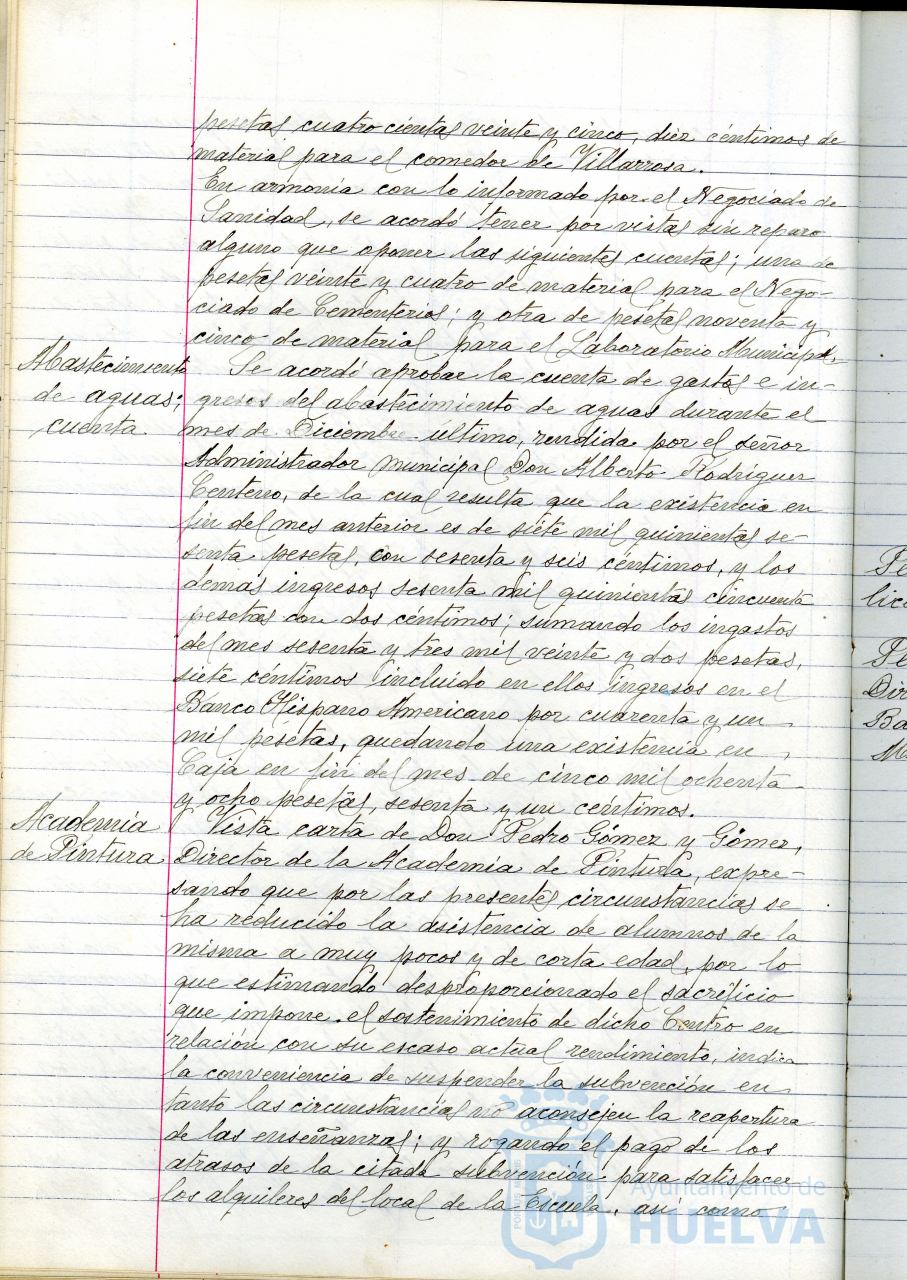 pesetas cuatrocientas veinte y cinco, diez céntimos de
material para el comedor de Villarrosa.
En armonía con lo informado por el Negociado de
Sanidad, se acordó tener por vistas sin reparo
alguno que oponer las siguientes cuentas; una de
pesetas veinte y cuatro de material para el Nego-
ciado de Cementerios; y otra de pesetas noventa y
cinco de material para el Laboratorio Municipal.
Abastecimiento
de aguas;
cuenta
Se acordó aprobar la cuenta de gastos e in-
gresos del abastecimiento de aguas durante el
mes de Diciembre último, rendida por el señor
Administrador municipal Don Alberto Rodriguez
Centeno, de la cual resulta que la existencia en
fin del mes anterior es de siete mil quinientas se-
senta pesetas, con sesenta y seis céntimos, y los
demás ingresos sesenta mil quinientas cincuenta
pesetas con dos céntimos; sumando los ingastos
del mes sesenta y tres mil veinte y dos pesetas,
siete céntimos incluido en ellos ingresos en el
Banco Hispano Americano por cuarenta y un
mil pesetas, quedando una existencia en
Caja en fin del mes de cinco mil ochenta
y ocho pesetas, sesenta y un centimos.
Academia
de Pintura
Vista carta de Don Pedro Gómez y Gómez,
Director de la Academia de Pintura, expre-
sando que por las presentes circunstancias se
ha reducido la asistencia de alumnos de la
misma a muy pocos y de corta edad, por lo
que estimando desproporcionado el sacrificio
que impone el sostenimiento de dicho Centro en
relación con su escaso actual rendimiento, indica
la conveniencia de suspender la subvención en
tanto las circunstancias no aconsejen la reapertura
de las enseñanzas; y rogando el pago de los
atrasos de la citada subvención para satisfacer
los alquileres del local de la Escuela, así como
Ayuntamiento de
HUELVA